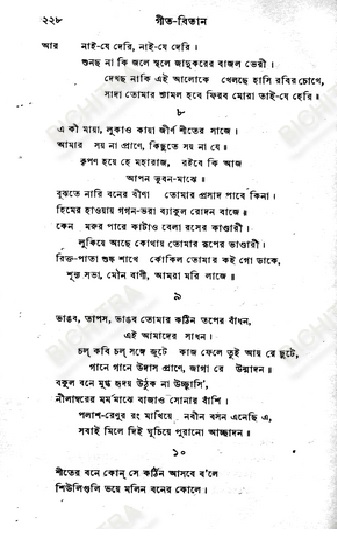 ২২৮ গীত-বিতান
আর নাই-যে দেরি, নাই-যে দেরি।
শুনছ না কি জলে স্থলে জাদুকরের বাজল ভেরী।
দেখছ নাকি এই আলোকে খেলছে হাসি রবির চোখে,
সাদা তোমার শ্যামল হবে ফিরব মোরা তাই-যে হেরি॥
৮
এ কী মায়া, লুকাও কায়া জীর্ণ শীতের সাজে।
আমার সয় না প্রাণে, কিছুতে সয় না যে।
কৃপণ হয়ে হে মহারাজ, রইবে কি আজ
আপন ভুবন-মাঝে।
বুঝতে নারি বনের বীণা তোমার প্রসাদ পাবে কিনা।
হিমের হাওয়ায় গগন-ভরা ব্যাকুল রোদন বাজে।
কেন মরুর পারে কাটাও বেলা রসের কাণ্ডারী।
লুকিয়ে আছে কোথায় তোমার রূপের ভাণ্ডারী।
রিক্ত-পাতা শুষ্ক শাখে কোকিল তোমার কই গো ডাকে,
শূন্য সভা, মৌন বাণী, আমরা মরি লাজে॥
৯
ভাঙব, তাপস, ভাঙব তোমার কঠিন তপের বাঁধন,
এই আমাদের সাধন।
চল্ কবি চল্ সঙ্গে জুটে কাজ ফেলে তুই আয় রে ছুটে,
গানে গানে উদাস প্রাণে, জাগা রে উন্মাদন॥
বকুল বনে মুগ্ধ হৃদয় উঠুক না উচ্ছ্বাসি',
নীলাম্বরের মর্মমাঝে বাজাও সোনার বাঁশি।
পলাশ-রেণুর রং মাখিয়ে নবীন বসন এনেছি এ,
সবাই মিলে দিই ঘুচিয়ে পুরানো আচ্ছাদন॥
১০
শীতের বনে কোন্ সে কঠিন আসবে ব'লে
শিউলিগুলি ভয়ে মলিন বনের কোলে।
BICHITRA